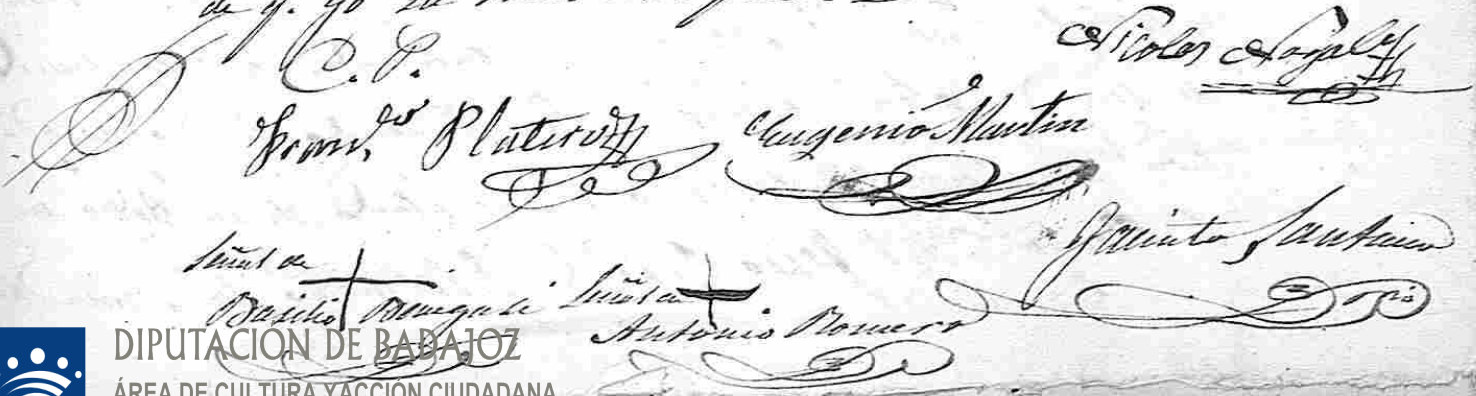 de q. yo
C. P.
Nicolas Nogales
Fran.co Platero
Eugenio Martin
Jacinto Santiago
Señal de
Basilio
Señal de
Antonio Romero
DIPUTACIÓN DE BADAJOZ
ÁREA DE CULTURA Y ACCIÓN CIUDADANA